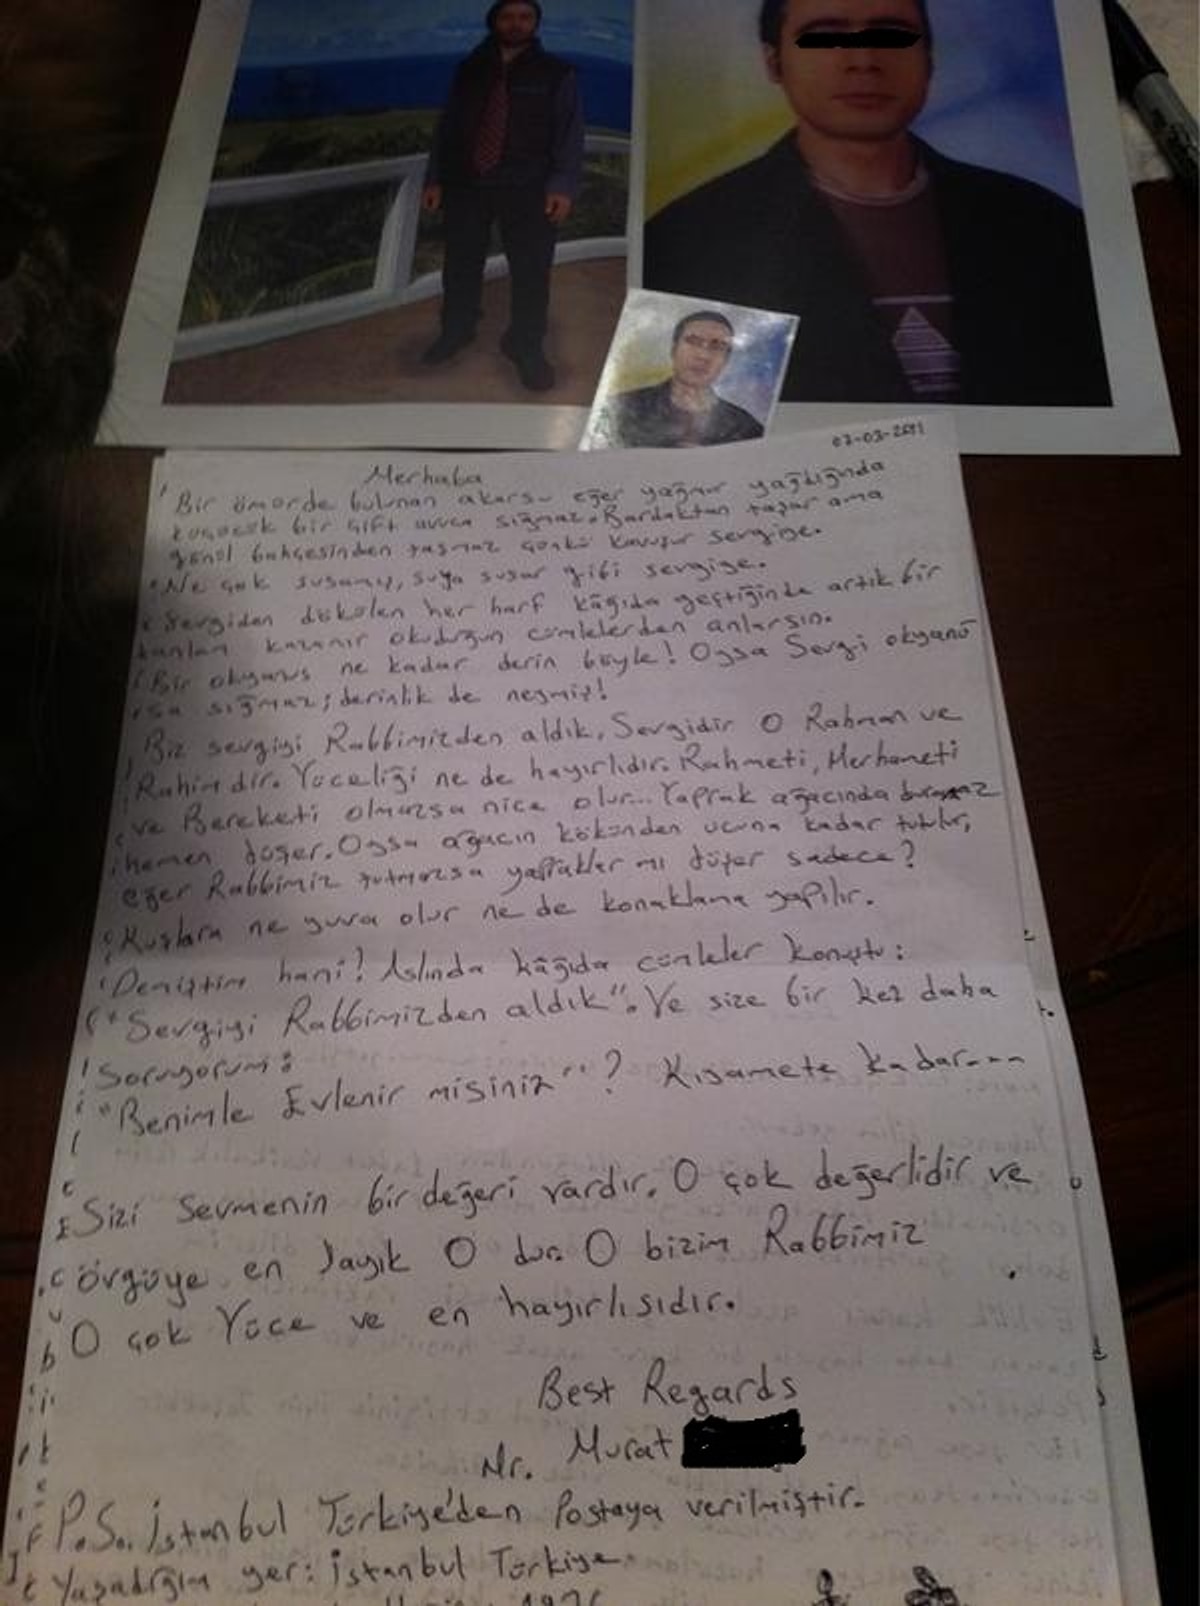 Merhaba
Bir ömürde bulunan akarsu eğer yağmur yağdığında
bir çift avuca sığmaz. Bardaktan taşar ama
gönül bahçesinden taşmaz çünkü kavuşur sevgiye.
Ne çok susamış, suya susar gibi sevgiye.
Sevgiden dökülen her harf kâğıda geçtiğinde artık bir
anlam kazanır okuduğun cümlelerden anlarsın.
Bir okyanus ne kadar derin böyle! Oysa Sevgi okyanu
sa sığmaz; derinlik de neymiş!
Biz sevgiyi Rabbimizden aldık, Sevgidir O Rahman ve
Rahimdir. Yüceliği ne de hayırlıdır. Rahmeti, Merhameti
ve Bereketi olmazsa nice olur... Yaprak ağacında durmaz
hemen düşer. Oysa ağacın kökünden ucuna kadar tutulur,
eğer Rabbimiz tutmazsa yapraklar mı düşer sadece?
Kuşlara ne yuva olur ne de konaklama yapılır.
Demiştim hani! Aslında kâğıda cümleler konuştu:
"Sevgiyi Rabbimizden aldık". Ve size bir kez daha
Soruyorum:
"Benimle Evlenir misiniz"? Kıyamete kadar...
Sizi Sevmenin bir değeri vardır. O çok değerlidir ve
övgüye en layık O dur. O bizim Rabbimiz
O çok Yüce ve en hayırlısıdır.
Best Regards
Mr. Murat
P.S. İstanbul Türkiye'den Postaya verilmiştir.
Yaşadığım yer: İstanbul Türkiye